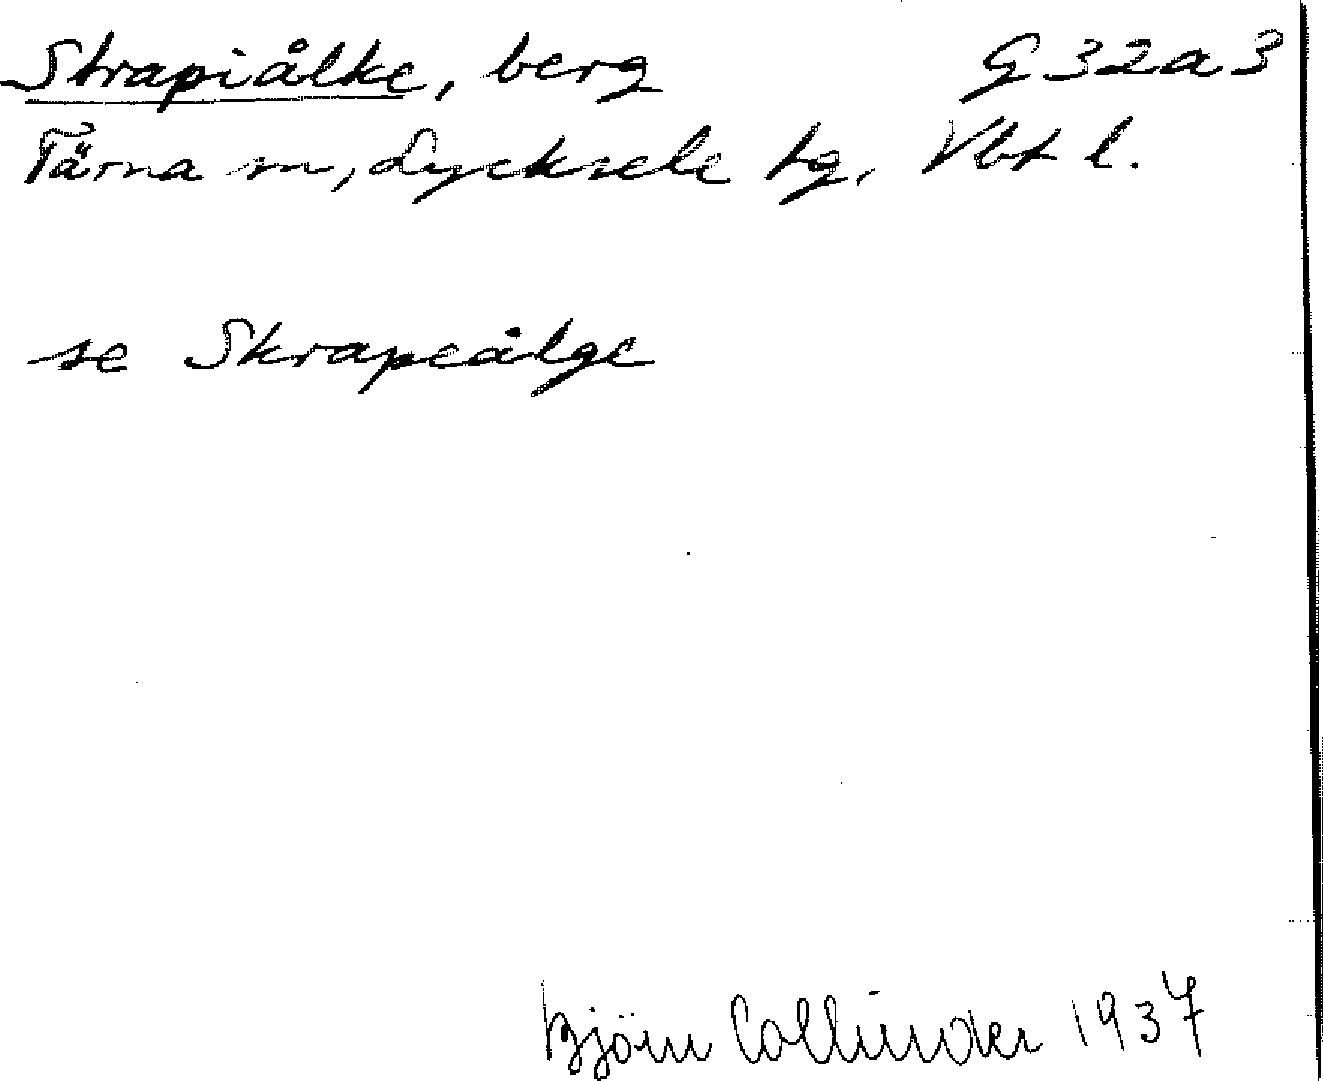 Strapiålke, berg G 32 a 3
Tärna sn, Lycksele tg, Vbt l.
se Skrapeålge
Björn Collinder 1937